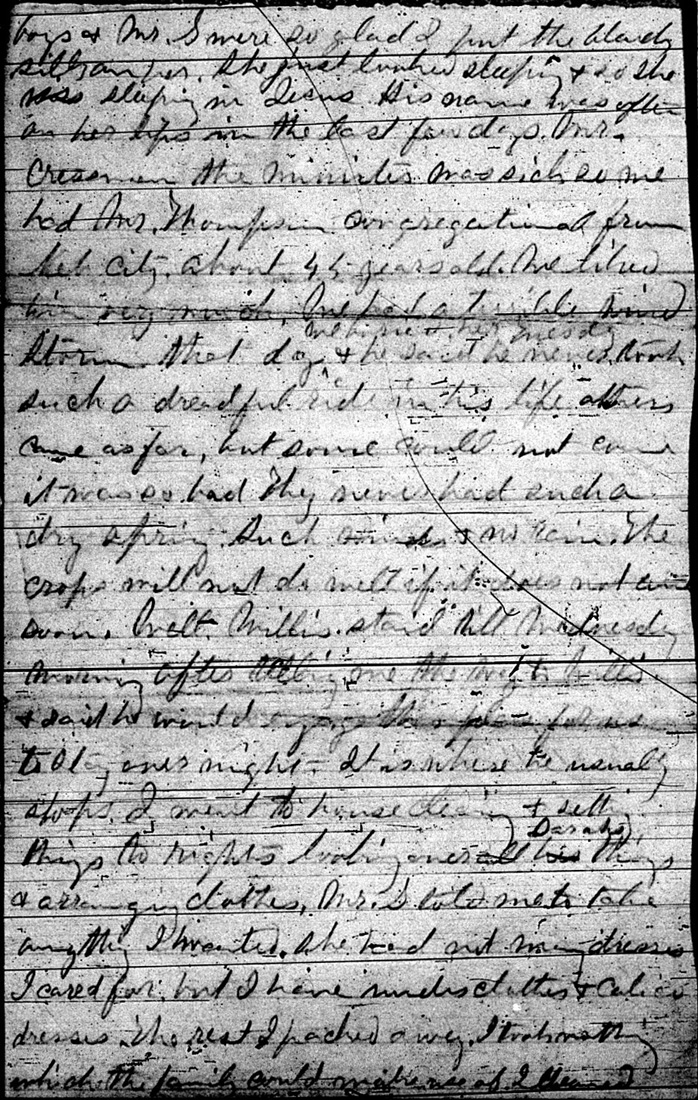 boys & Mr. S were so glad I put the
She just looked sleeping & so she
was sleeping in Jesus His name was often
on her lips in the last few days. Mr.
Cressman the minister was sick so we
had Mr. Thompson congregational from
city, about 45 years old. We liked
him very much. We had a terrible wind
we buried her Tuesday
Storm that day & he said he never took
such a dreadful ride in his life others
came as far, but some could not come
it was so bad They never had such a
dry spring. Such winds & no rain. The
crops will not do well if it does not
soon. Well. Willis staid till Wednesday
morning after telling me the way to
& said he would engage this place for us
to stay over night. It is where he usually
stops. I went to house cleaning & setting
Sarahs
things to rights looking over all his things
& arranging clothes, Mr. S told me to take
anything I wanted. She had not many dresses
I cared for, but I have under clothes & calico
dresses. The rest I packed away. I took nothing
which the family could make use of. I cleaned